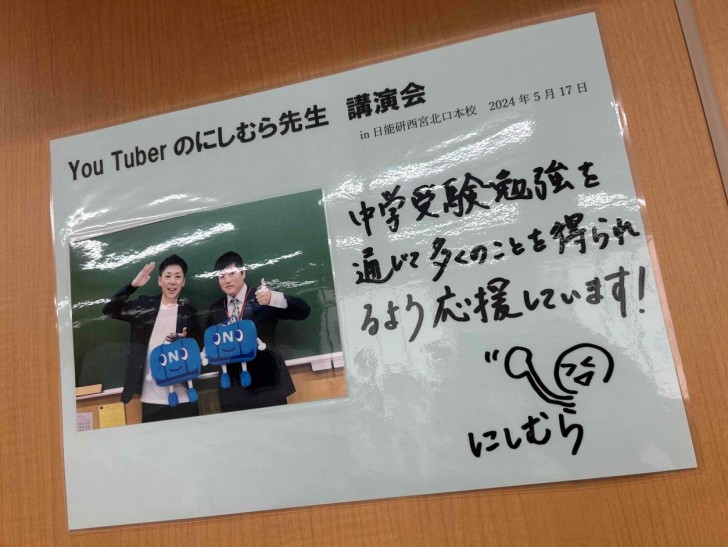 You Tuber のにしむら先生 講演会
in 日能研西宮北口本校 2024年5月17日
中学受験勉強を
通じて多くのことを得られ
るよう応援しています!
にしむら
N
N